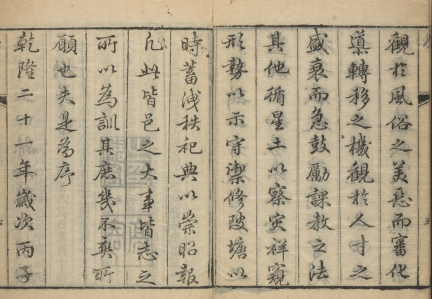 觀於風俗之美惡而審化
導轉移之機觀於人才之
盛衰而急鼓勵課教之法
其他循星土以察灾祥窺
形勢以示守禦修陂塘以
時蓄洩秩祀典以崇昭報
凡此皆邑之大事皆志之
所以為訓其庶幾不爽所
願也夫是為序
乾隆二十一年歲次丙子